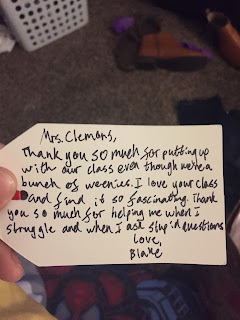 Mrs. Clemans,
Thank you so much for putting up
with our class even though we're a
bunch of weenies. I love your class
and find it so fascinating. Thank
you so much for helping me when I
struggle and when I ask stupid questions
Love,
Blake